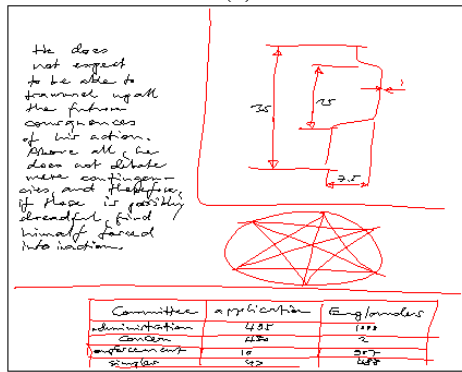 He does
not expect
to be able to
all
the future
consequences
of his action.
Above all, he
does not debate
mere contingen-
cies, and therefore,
if there is possibly
dreadful, find
himself forced
into inaction.
35
25
7.5
Committee application Englanders
administration 495
Concern 480 2
enforcement 10 907
simpler 42 488